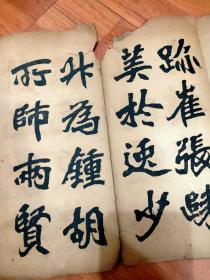 跡崔張歸
美於逸少
升為鍾胡
所師兩賢